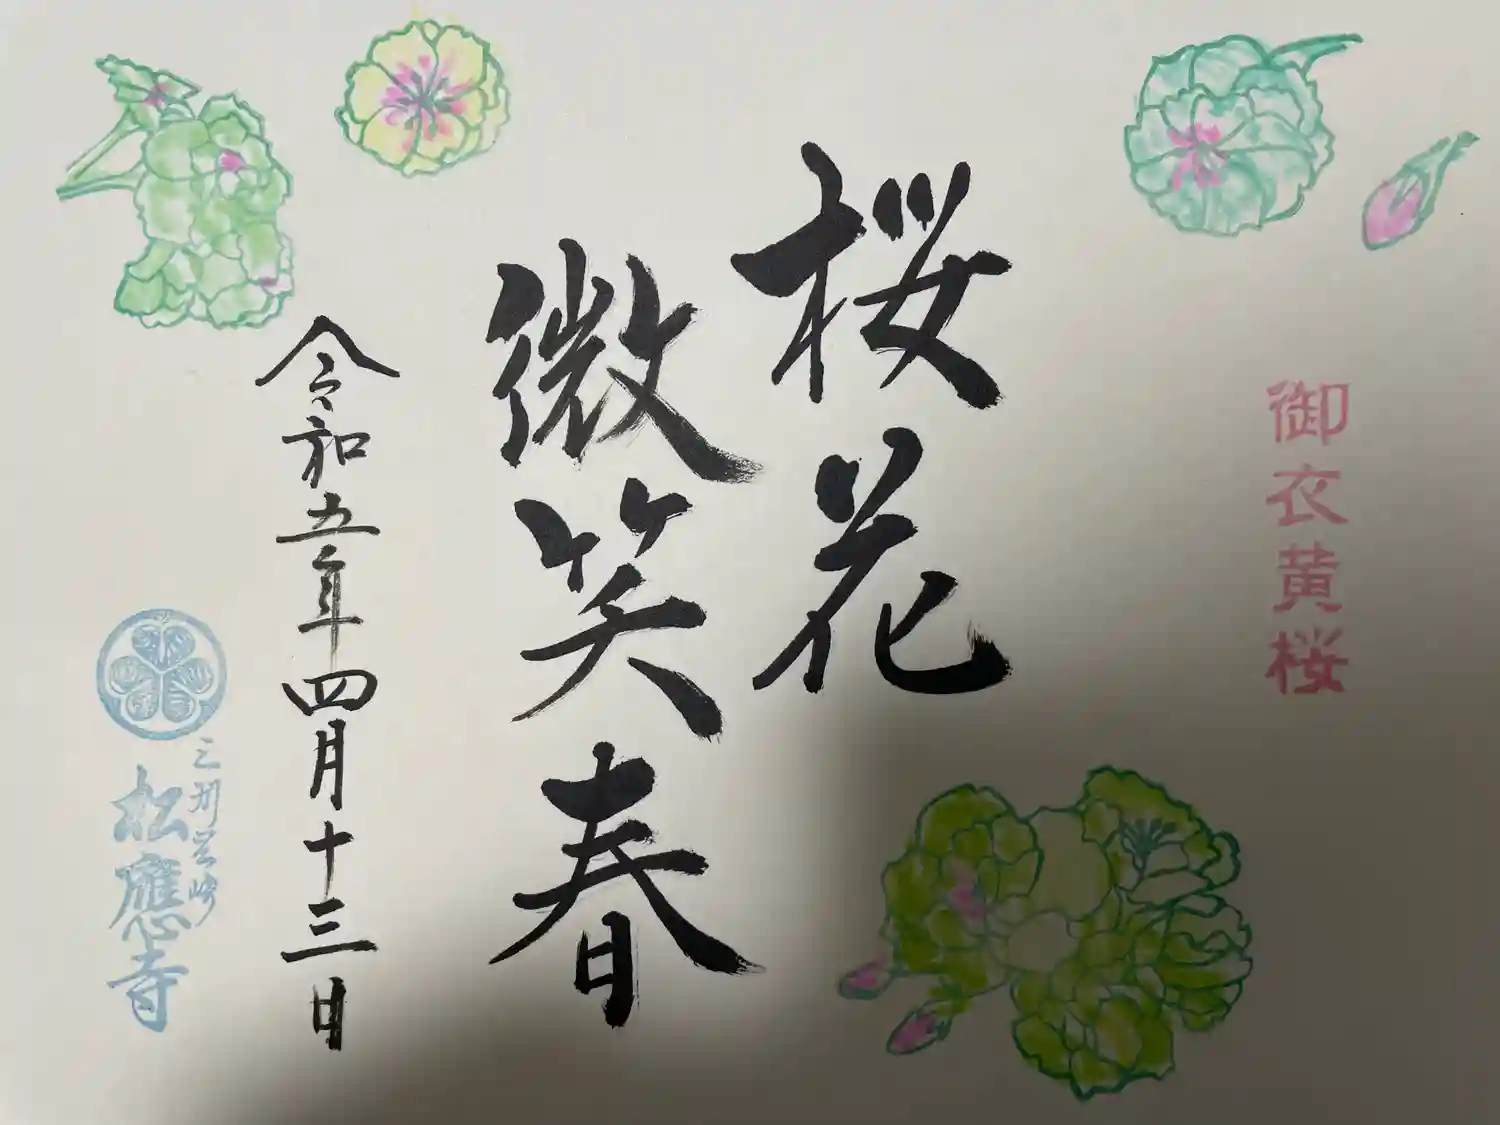 御衣黄桜
桜花
微笑春
令和五年四月十三日
三州岡崎
松應寺